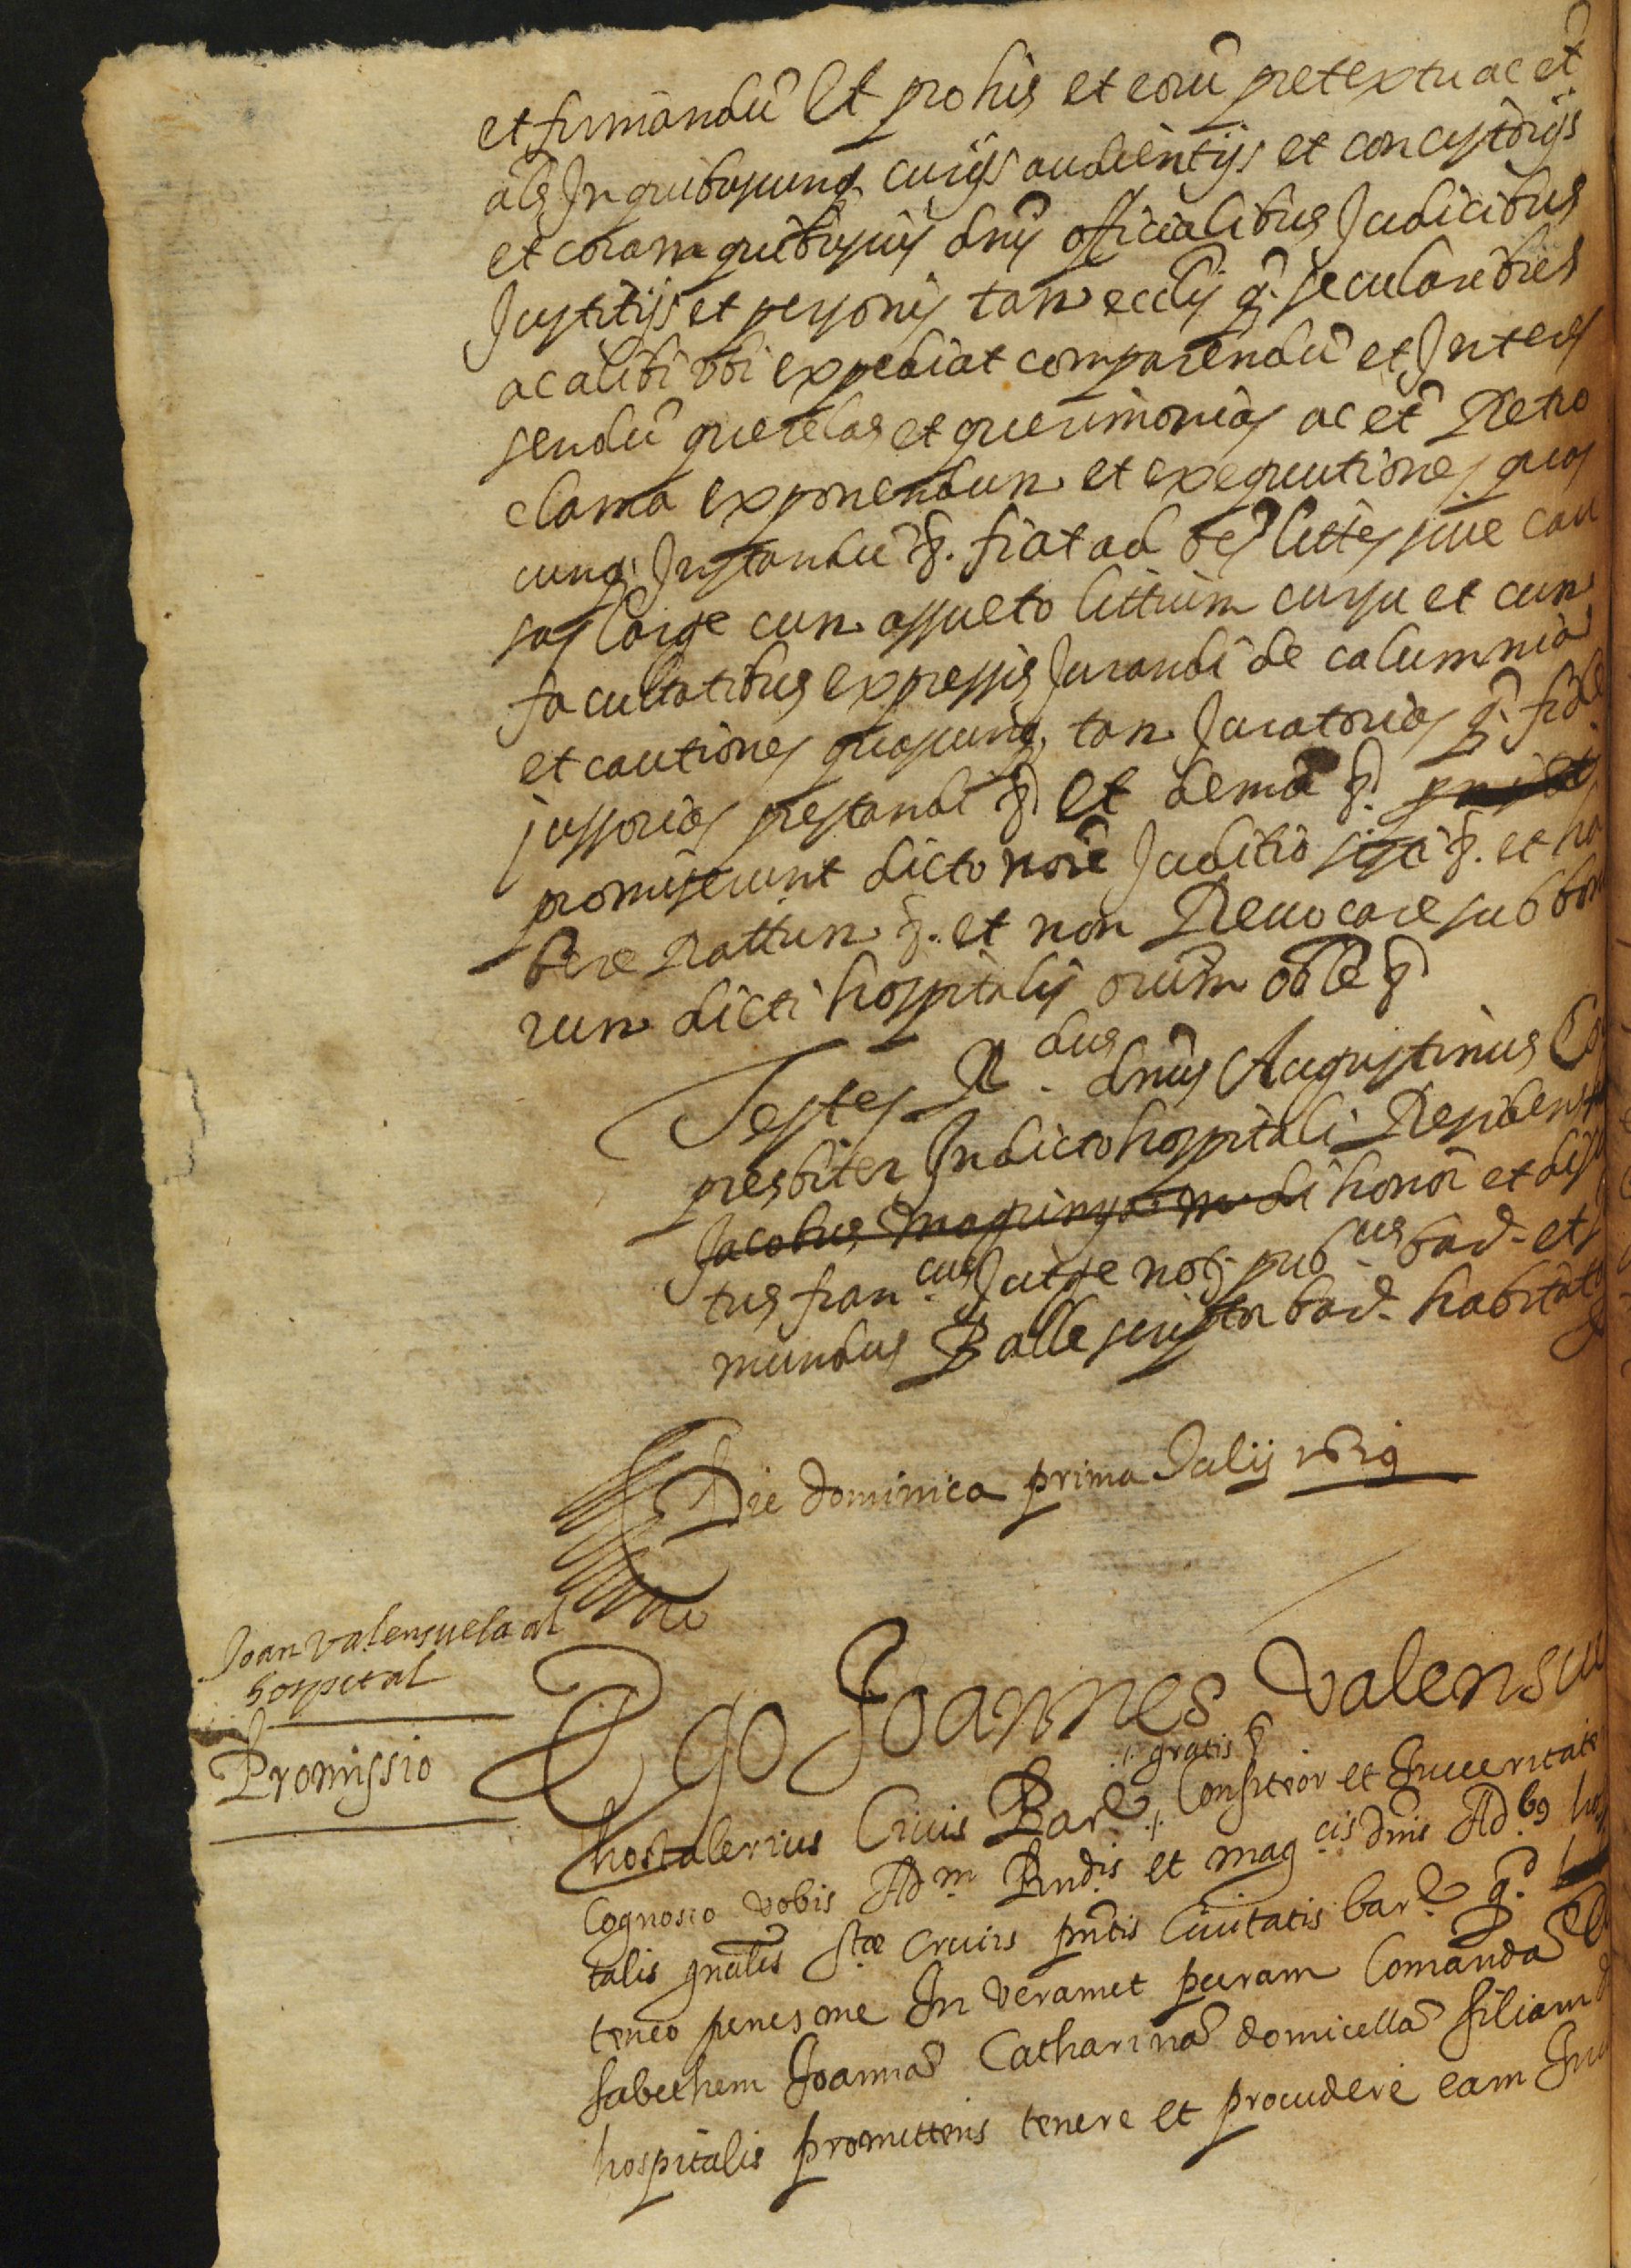 et firmandū Et pro his et eorū pretextu ac et̄
als In quibuscunq curijs audientijs et concistorijs
et coram quibusuis dnis officialibus Judicibus
Justitijs et personis tam ecclis q. secularibus
ac alibi vbi expediat comparendū et Interes
sendū querelas et querimonias ac et̄ Retro
clama exponendum et exequutiones quas
cunq Instandū &. fiat ad oēs littes siue cau
sas large cum assueto littium cursu et cum
facultatibus expressis Jurandi de calumnia
et cautiones quascunq tam Juratorias q. fide
jussorias prestandi & Et demū &.
promiserunt dicto noīe Juditio sisti &. et ha
bere Rattum &. et non Reuocare sub bono
rum dicti hospitalis oīum oble &
Testes Rdus. dnus Augustinus Co
presbiter In dicto hospitali Residens
Jacobus di honor et discre
tus francus. Jutge nots. pubcus. bard. et
mundus Balle scriptor bard. habitat
Die dominica prima Julij
Joan Valensuela al
hospital
Promissio
Ego Joannes Valensue
gratis &
hostalerius Ciuis Bare. Confiteor et Inueritate
Cognosco vobis Adm. Rndis. et magcis. dnis Adbs. hos
talis gnalis Stæ crucis pntis Ciuitatis bare. q.
teneo penes me In veram et puram Comandā
sabethem Joannā Catharinā domicellā filiam
hospitalis promittens tenere et procudere eam